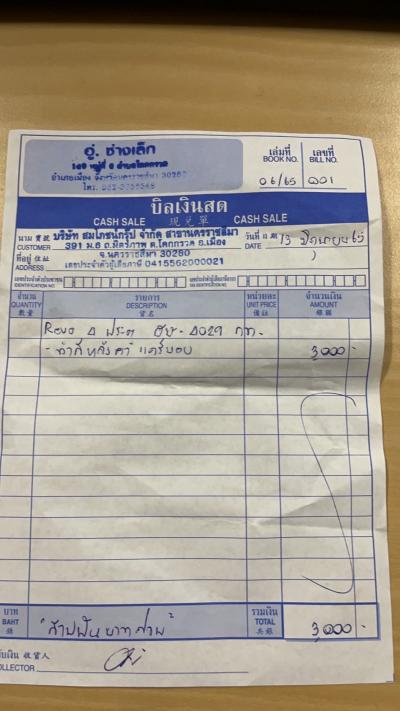 อู่. ช่างเล็ก
149 หมู่ที่ 6 ตำบลโคกกรวด
อำเภอเมือง จังหวัดนครราชสีมา 30280
โทร.
เล่มที่ เลขที่
BOOK NO. BILL NO.
06/65 001
บิลเงินสด
CASH SALE 現兑單 CASH SALE
นาม 寳號 บริษัท สมโภชน์กรุ๊ป จำกัด สาขานครราชสีมา
CUSTOMER 391 ม.6 ถ.มิตรภาพ ต.โคกกรวด อ.เมือง
วันที่ 日期 13 มิถุนายน 65
DATE
ที่อยู่ 住址 จ.นครราชสีมา 30280
ADDRESS เลขประจำตัวผู้เสียภาษี 0415562000021
เลขประจำตัวประชาชน เลขประจำตัวผู้เสียภาษีอากร
IDENTIFICATION NO. TAX IDENTIFICATION NO.
จำนวน รายการ หน่วยละ จำนวนเงิน
QUANTITY DESCRIPTION UNIT PRICE AMOUNT
數量 貨名 備註 銀碼
Revo 4 ประตู 4029 กท.
- ทำสีหลังคา แค๊บบอบ 3,000 -
บาท รวมเงิน
BAHT "สามพันบาทถ้วน" TOTAL 3,000 -
銖 共銀
รับเงิน 收貨人
COLLECTOR